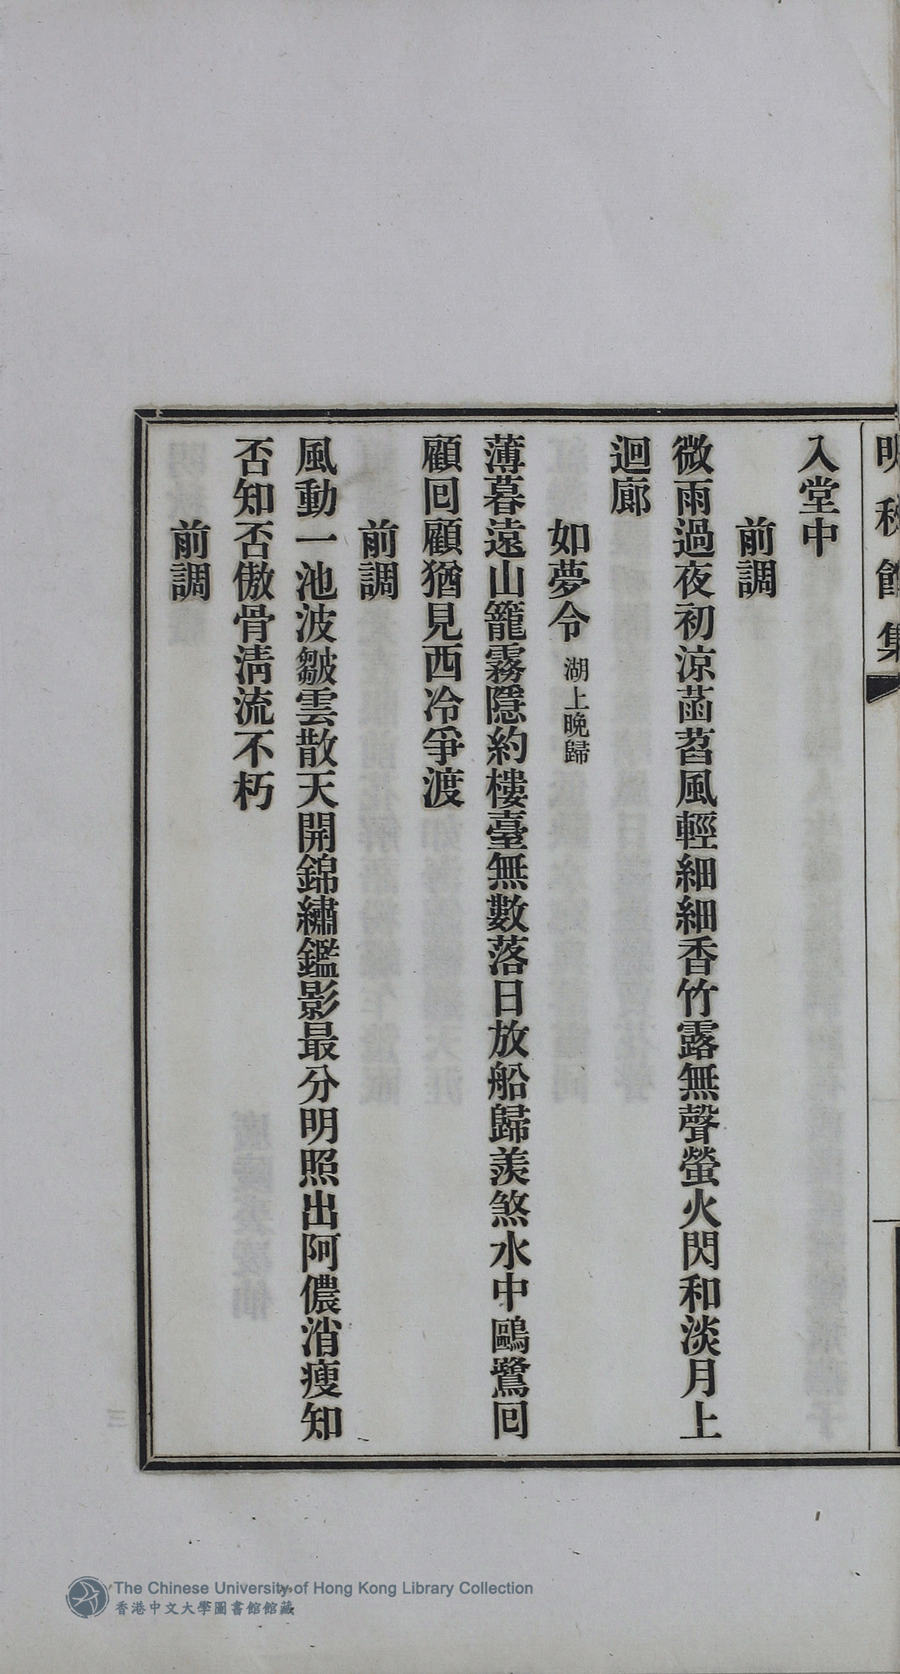 明秘館集
入堂中
前調
微雨過夜初涼菡萏風輕細細香竹露無聲螢火閃和淡月上
迴廊
如夢令 湖上晚歸
薄暮遠山籠霧隱約樓臺無數落日放船歸羨煞水中鷗鷺回
顧回顧猶見西冷爭渡
前調
風動一池波皺雲散天開錦繡鑑影最分明照出阿儂消瘦知
否知否傲骨淸流不朽
前調
The Chinese University of Hong Kong Library Collection
香港中文大學圖書館館藏